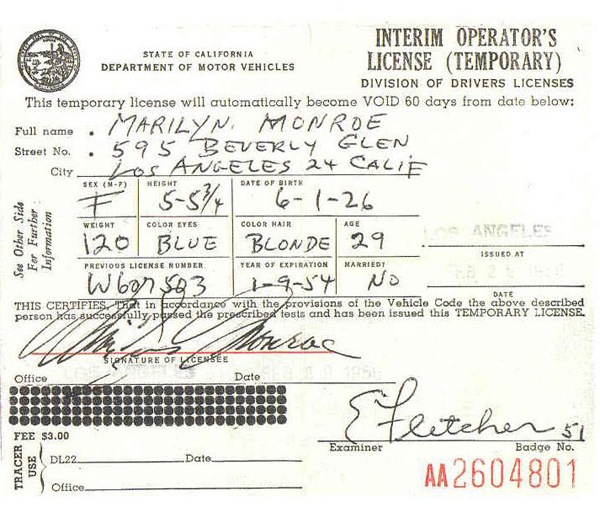 STATE OF CALIFORNIA
DEPARTMENT OF MOTOR VEHICLES
INTERIM OPERATOR'S
LICENSE (TEMPORARY)
DIVISION OF DRIVERS LICENSES
This temporary license will automatically become VOID 60 days from date below:
Full name . MARILYN. MONROE
Street No. . 595 BEVERLY GLEN
City LOS ANGELES 24 CALIF
See Other Side
For Further
Information
SEX (M-F) HEIGHT DATE OF BIRTH
F 5-5 3/4 6-1-26
WEIGHT COLOR EYES COLOR HAIR AGE
120 BLUE BLONDE 29
LOS ANGELES
ISSUED AT
PREVIOUS LICENSE NUMBER YEAR OF EXPIRATION MARRIED?
W607503 1-9-54 NO
FEB
DATE
THIS CERTIFIES, That in accordance with the provisions of the Vehicle Code the above described
person has successfully passed the prescribed tests and has been issued this TEMPORARY LICENSE.
Marilyn Monroe
SIGNATURE OF LICENSEE
LOS ANGELES
Office Date
E Fletcher 51
FEE $3.00
Examiner Badge No.
TRACER
USE
DL22 Date
Office
AA2604801